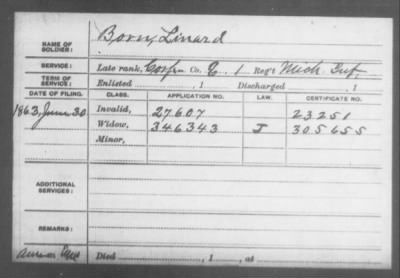 NAME OF SOLDIER: Born, Linard
SERVICE: Late rank, Corp Co. 1 Reg't Mich. Inf.
TERM OF SERVICE: Enlisted , 1 Discharged , 1
DATE OF FILING. CLASS. APPLICATION NO. LAW. CERTIFICATE NO.
1863, June 30 Invalid, 27607 23251
Widow, 346343 J 305655
Minor,
ADDITIONAL SERVICES:
REMARKS:
Died , 1 , at